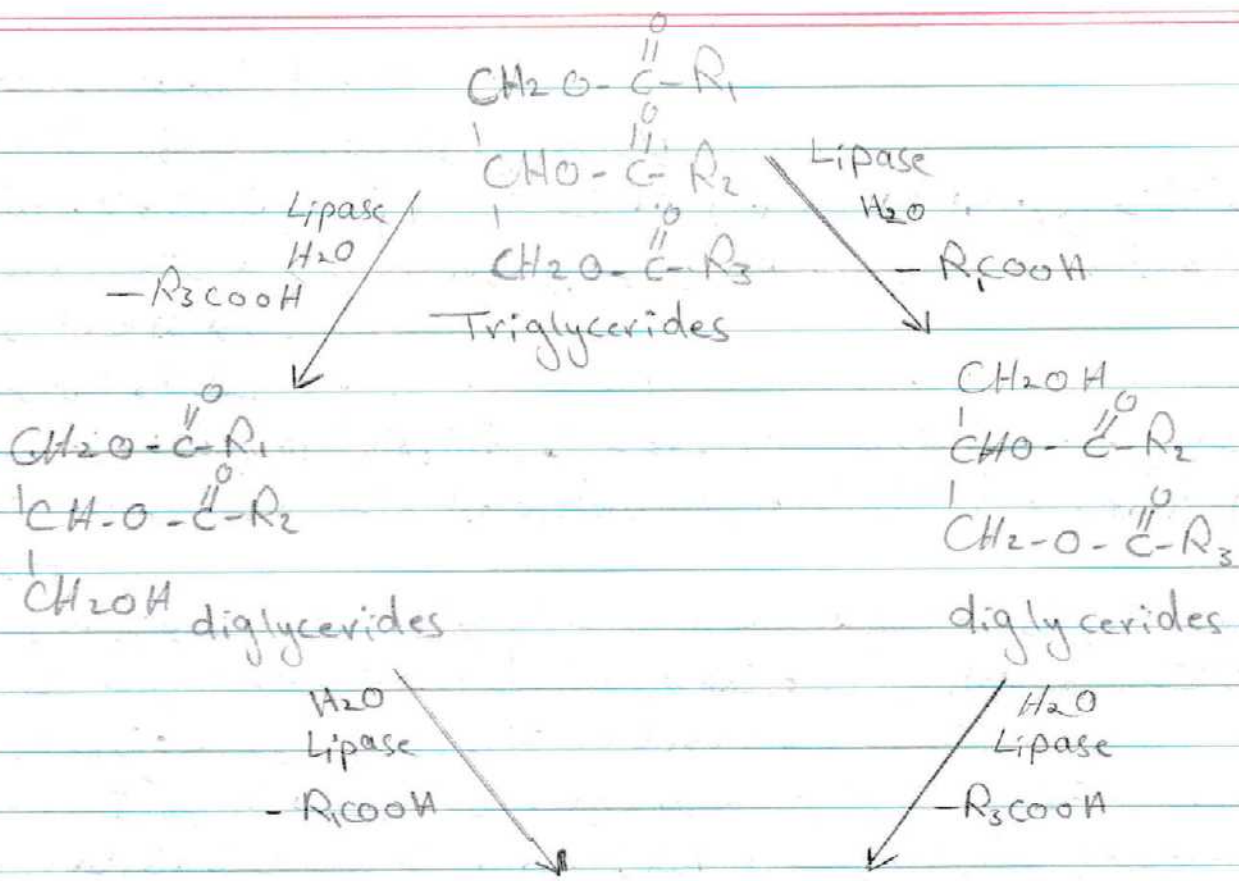 O
||
CH2O-C-R1
|
O
||
CHO-C-R2
|
O
||
CH2O-C-R3
Triglycerides
Lipase
H2O
-R3COOH
Lipase
H2O
-R1COOH
O
||
CH2O-C-R1
|
O
||
CH-O-C-R2
|
CH2OH
diglycerides
CH2OH
|
O
||
CHO-C-R2
|
O
||
CH2-O-C-R3
diglycerides
H2O
Lipase
-R1COOH
H2O
Lipase
-R3COOH